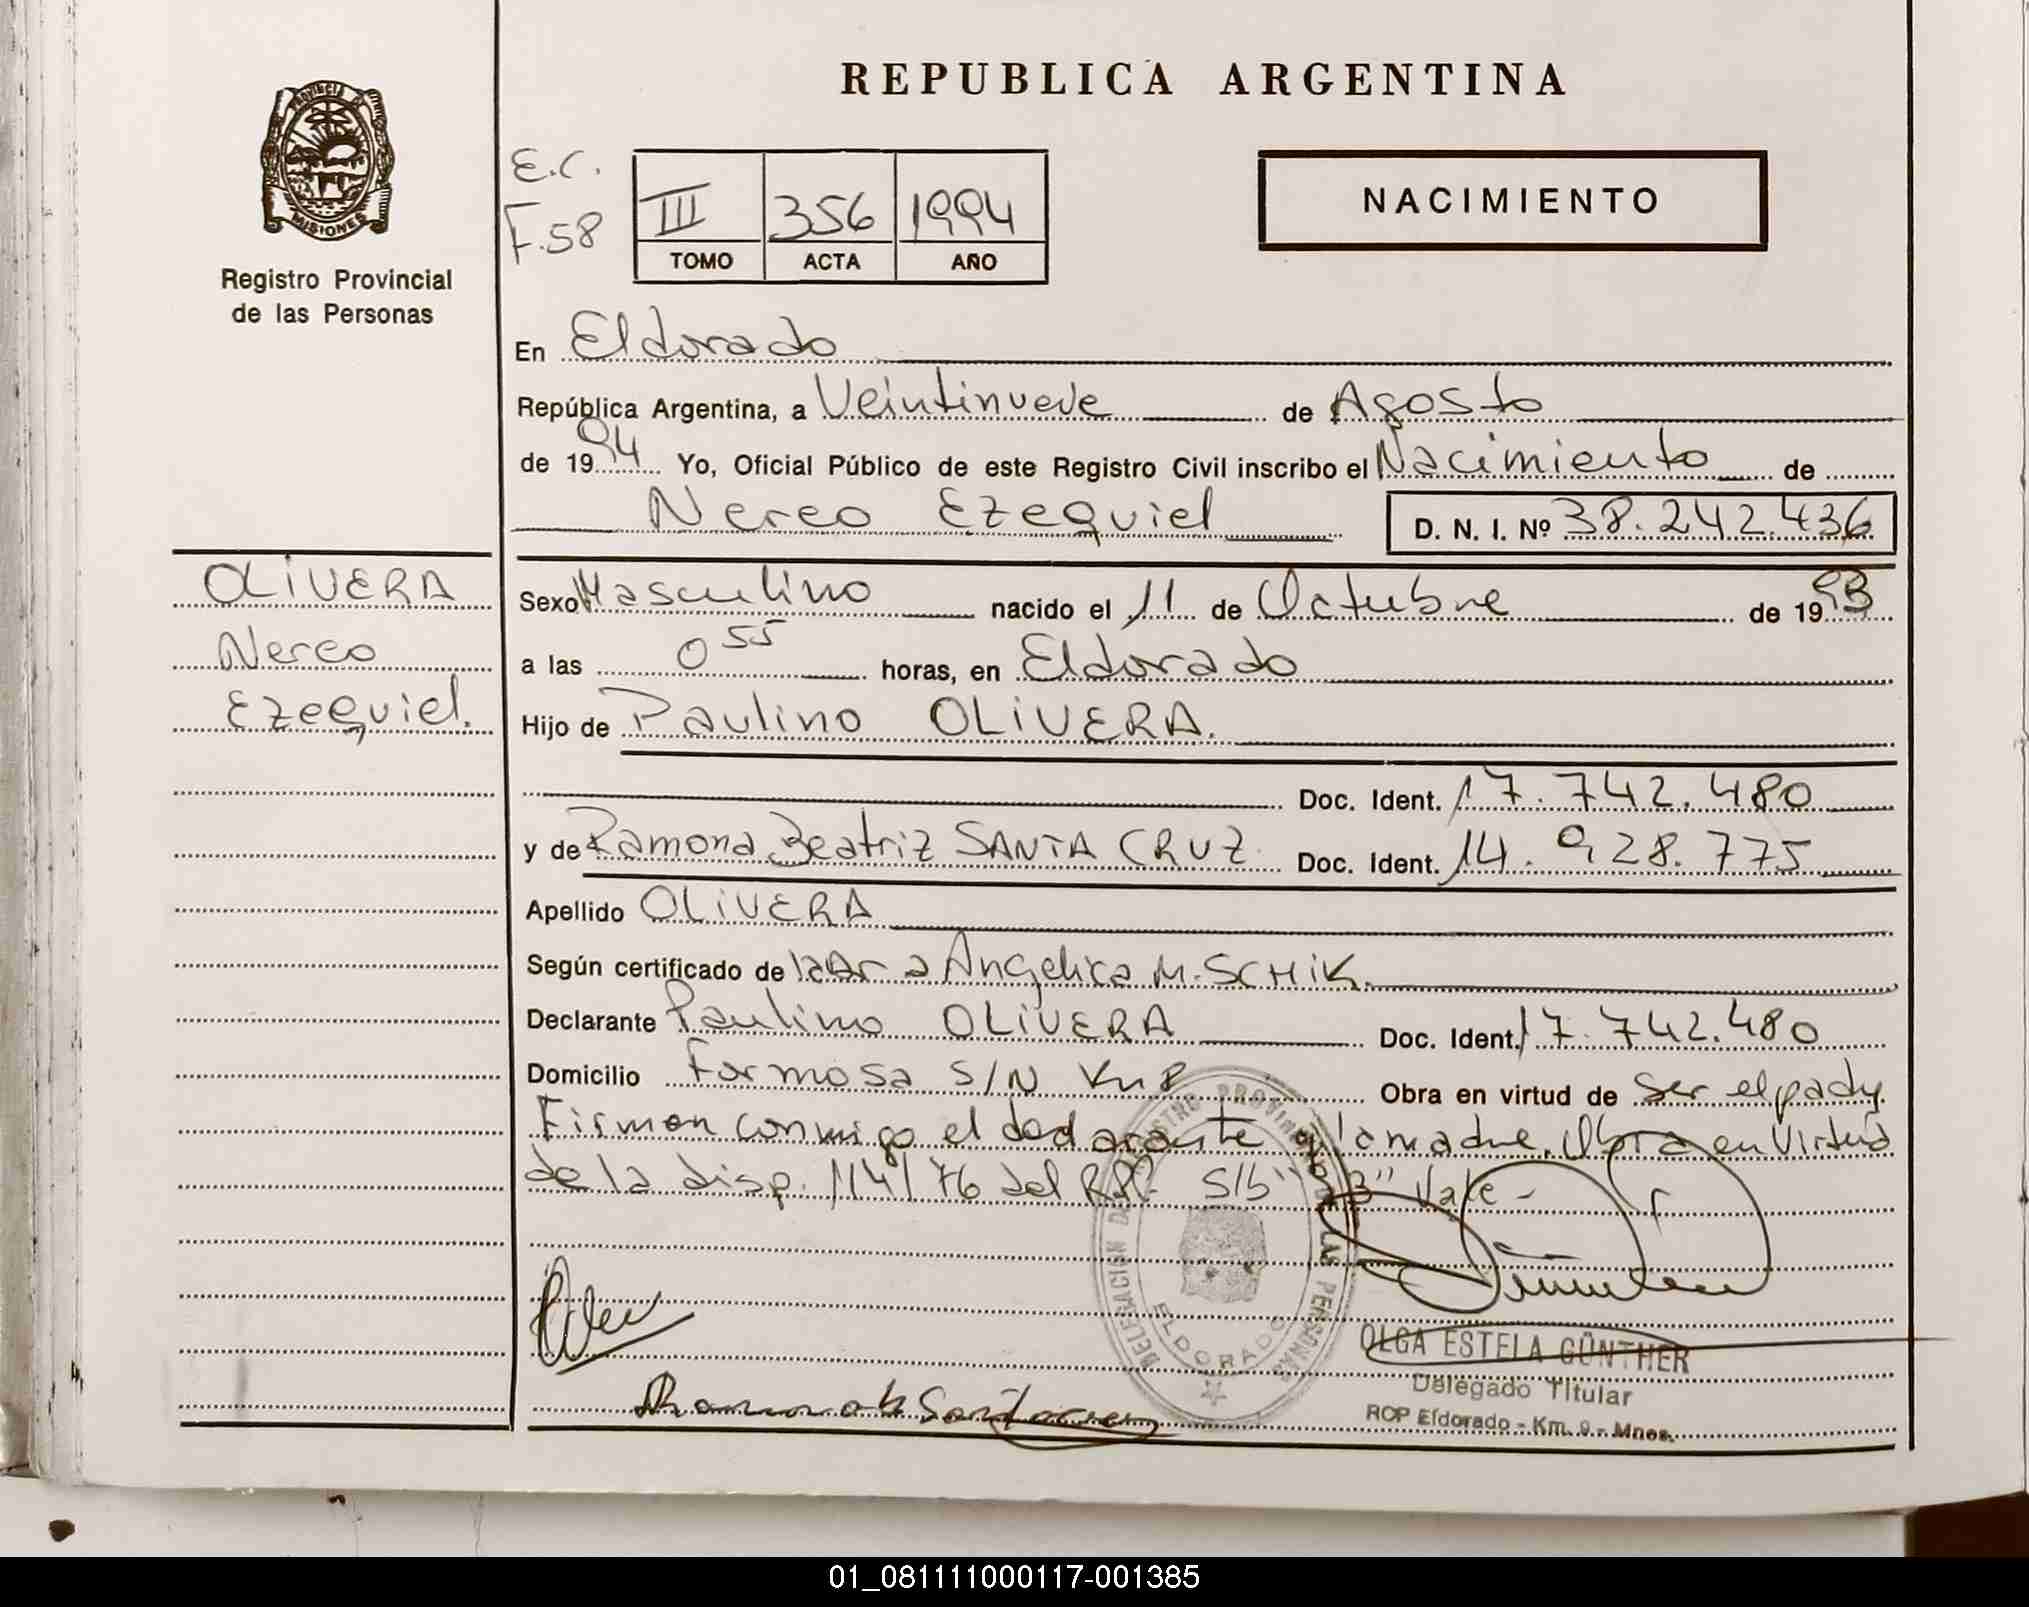 REPUBLICA ARGENTINA
PROVINCIA DE
MISIONES
Registro Provincial
de las Personas
E.C.
F.58
III 356 1994
TOMO ACTA AÑO
NACIMIENTO
En Eldorado
República Argentina, a Veintinueve de Agosto
de 1994 Yo, Oficial Público de este Registro Civil inscribo el Nacimiento de
Nereo Ezequiel D. N. I. Nº 38.242.436
OLIVERA
Nereo
Ezequiel.
Sexo Masculino nacido el 11 de Octubre de 1993
a las 0 55 horas, en Eldorado
Hijo de Paulino OLIVERA.
Doc. Ident. 17.742.480
y de Ramona Beatriz SANTA CRUZ. Doc. Ident. 14.928.775
Apellido OLIVERA
Según certificado de Angelica M. SCHIK.
Declarante Paulino OLIVERA Doc. Ident. 17.742.480
Domicilio Formosa S/N Km 8 Obra en virtud de Ser el padre.
Firman conmigo el declarante y la madre. Obra en Virtud
de la disp. 114/76 del RPP. S/b "93" Vale -
DELEGACION DEL REGISTRO PROVINCIAL DE LAS PERSONAS
ELDORADO
OLGA ESTELA GÜNTHER
Delegado Titular
RCP Eldorado - Km. 9 - Mnes.
01_081111000117-001385